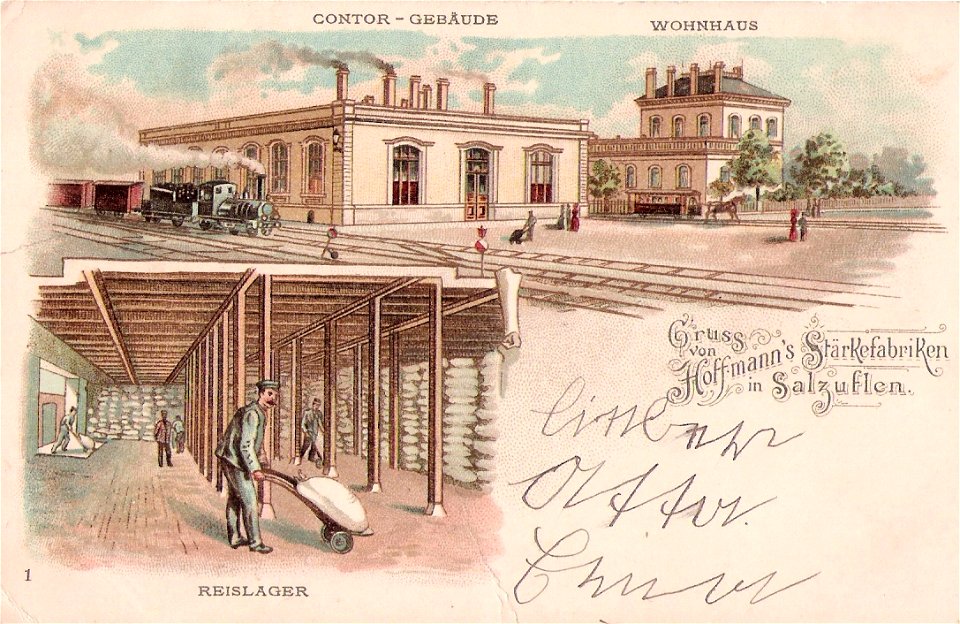 CONTOR - GEBÄUDE
WOHNHAUS
Gruss
von
Hoffmann's Stärkefabriken
in Salzuflen.
1
REISLAGER